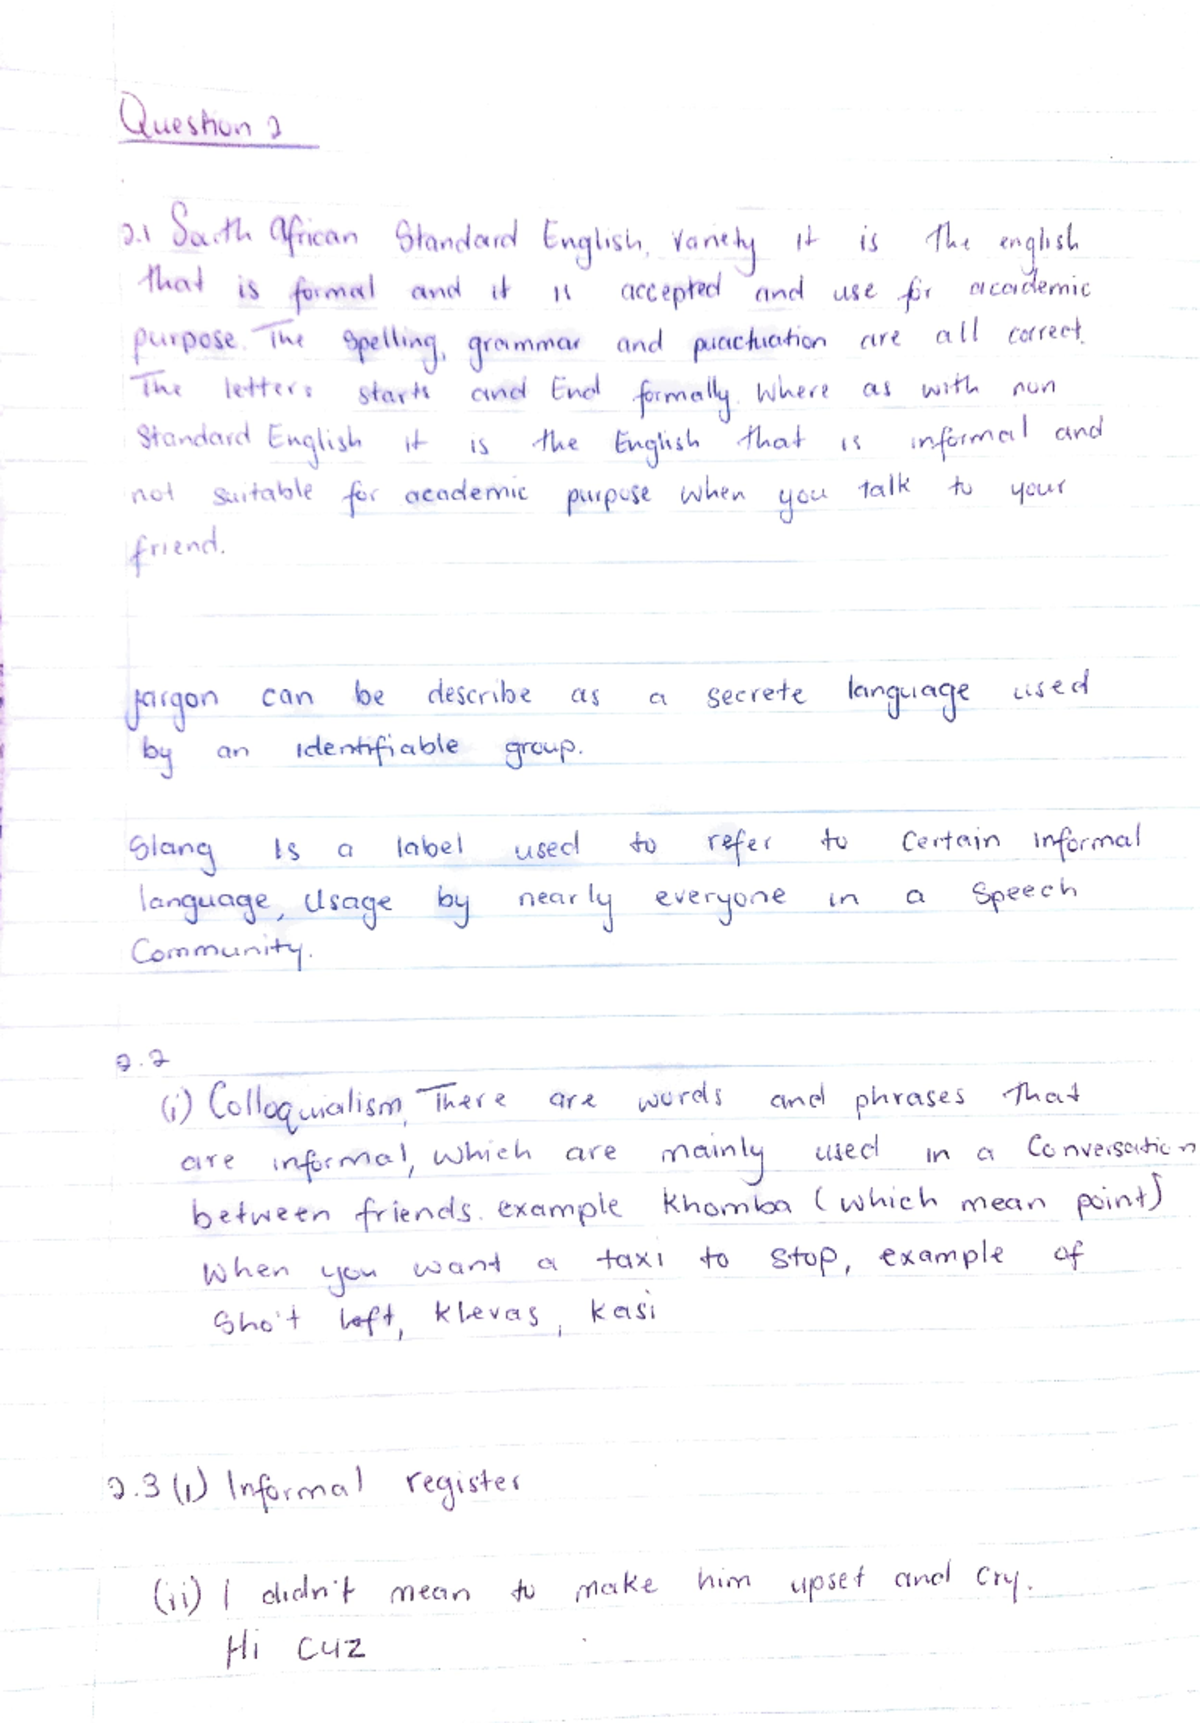 Question 2
2.1 South African Standard English, Variety it is the english
that is formal and it is accepted and use for academic
purpose. The spelling, grammar and puactuation are all correct.
The letters starts and End formally. Where as with nun
Standard English it is the English that is informal and
not suitable for academic purpose when you talk to your
friend.
jargon can be describe as a secrete language used
by an identifiable group.
Slang Is a label used to refer to Certain informal
language, Usage by nearly everyone in a Speech
Community.
2.2
(i) Colloquialism, There are words and phrases that
are informal, which are mainly used in a Conversation
between friends. example Khomba (which mean point)
When you want a taxi to stop, example of
Sho't left, klevas, kasi
2.3 (i) Informal register
(ii) I didn't mean to make him upset and cry.
Hi cuz